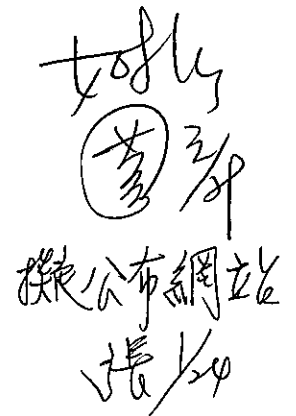 如擬
黃
擬公布網站
張 1/24